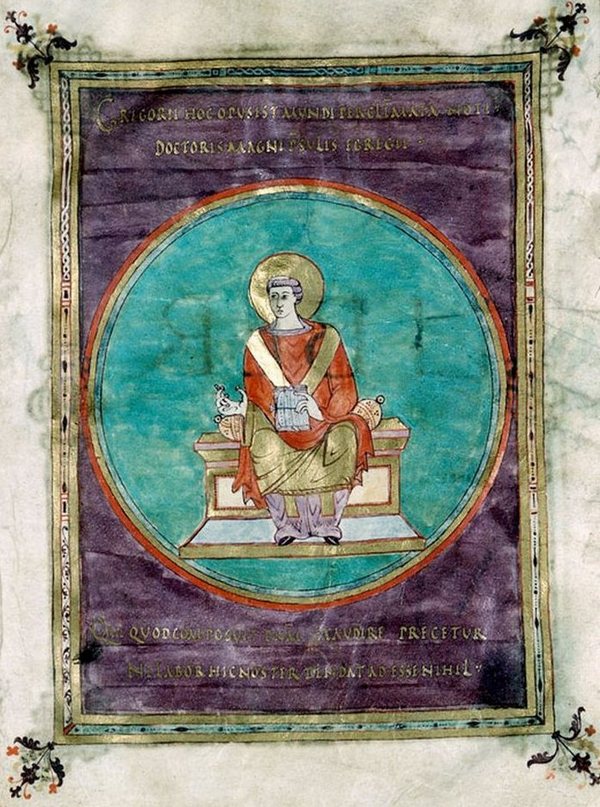 GREGORII HOC OPUS EST MUNDI PER CLIMATA NOTI
DOCTORIS MAGNI PSULIS EGREGII
QUOD COMPOSUIT EXAUDIRE PRECETUR
NE LABOR HIC NOSTER TENDAT AD ESSE NIHIL